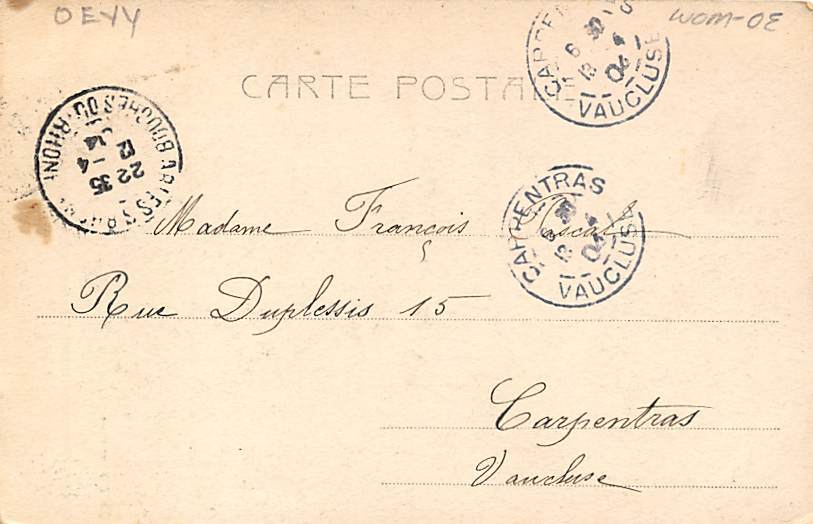 OEYY
WOM-OE
CARTE POSTALE
CARPEN
VAUCLUSE
ARLES S RHÔNE
BOUCHES DU RHONE
22 35
-4
12
CARPENTRAS
VAUCLUSE
Madame François Pascal
Rue Duplessis 15
Carpentras
Vaucluse